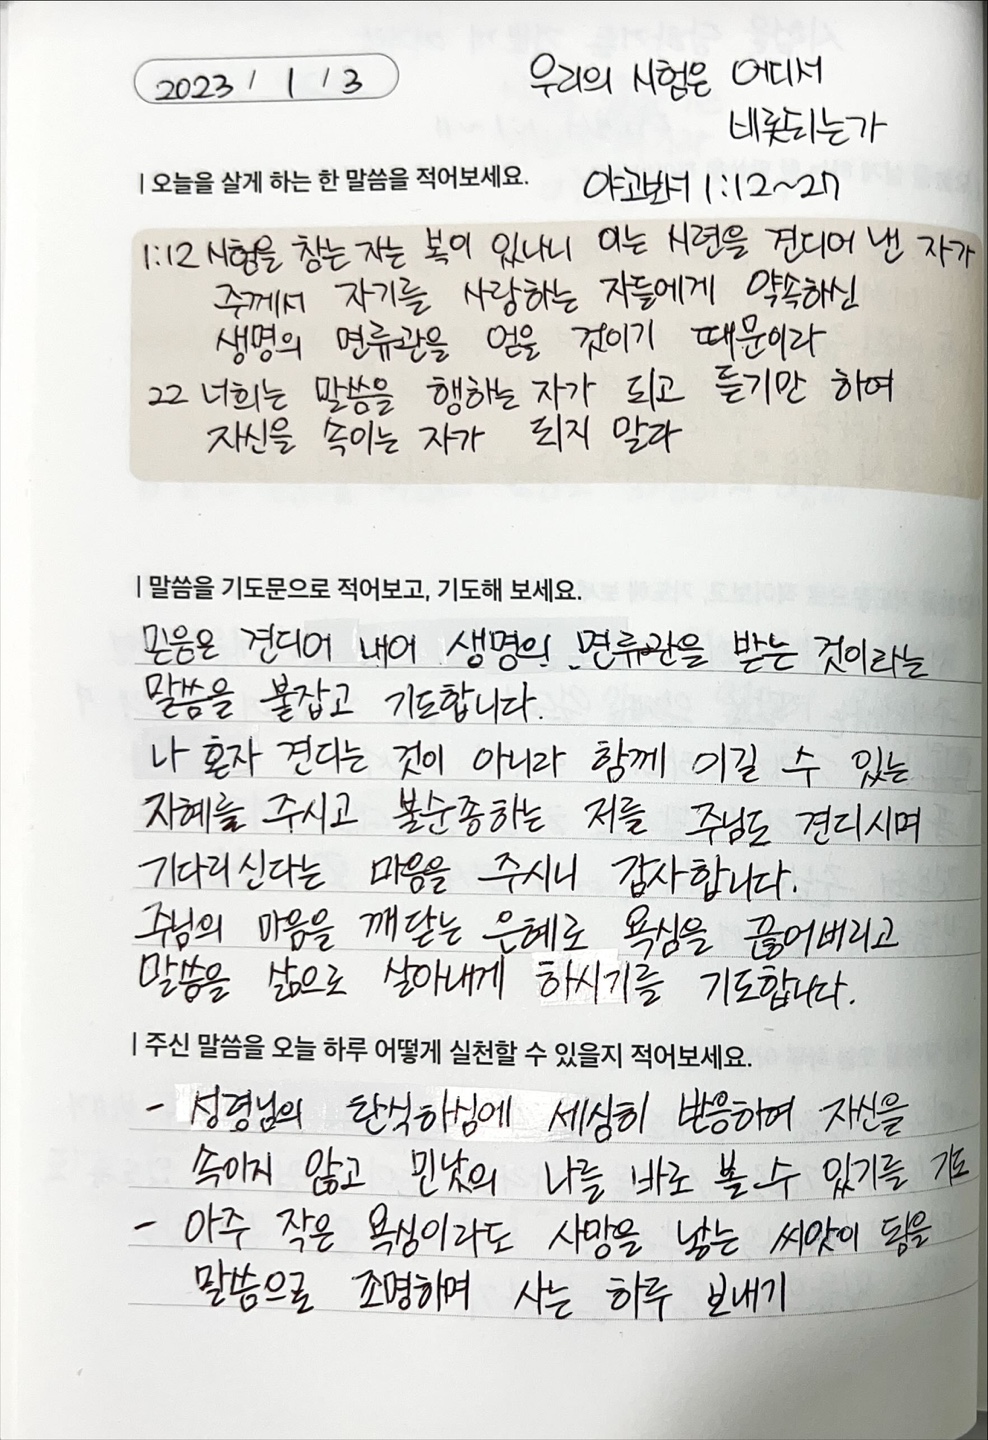 2023 / 1 / 3
우리의 시험은 어디서
비롯되는가
| 오늘을 살게 하는 한 말씀을 적어보세요.
야고보서 1:12~27
1:12 시험을 참는 자는 복이 있나니 이는 시련을 견디어 낸 자가
주께서 자기를 사랑하는 자들에게 약속하신
생명의 면류관을 얻을 것이기 때문이라
22 너희는 말씀을 행하는 자가 되고 듣기만 하여
자신을 속이는 자가 되지 말라
| 말씀을 기도문으로 적어보고, 기도해 보세요.
믿음은 견디어 내어 생명의 면류관을 받는 것이라는
말씀을 붙잡고 기도합니다.
나 혼자 견디는 것이 아니라 함께 이길 수 있는
지혜를 주시고 불순종하는 저를 주님도 견디시며
기다리신다는 마음을 주시니 감사합니다.
주님의 마음을 깨닫는 은혜로 욕심을 끊어버리고
말씀을 삶으로 살아내게 하시기를 기도합니다.
| 주신 말씀을 오늘 하루 어떻게 실천할 수 있을지 적어보세요.
- 성령님의 탄식하심에 세심히 반응하여 자신을
속이지 않고 민낯의 나를 바로 볼 수 있기를 기도
- 아주 작은 욕심이라도 사망을 낳는 씨앗이 됨을
말씀으로 조명하며 사는 하루 보내기